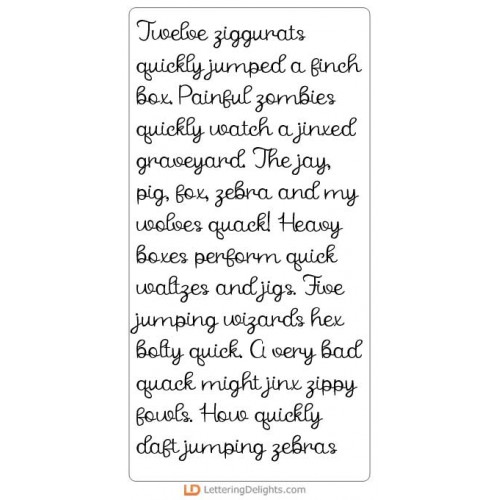 Twelve ziggurats
quickly jumped a finch
box. Painful zombies
quickly watch a jinxed
graveyard. The jay,
pig, fox, zebra and my
wolves quack! Heavy
boxes perform quick
waltzes and jigs. Five
jumping wizards hex
bolty quick. A very bad
quack might jinx zippy
fowls. How quickly
daft jumping zebras
LD LetteringDelights.com